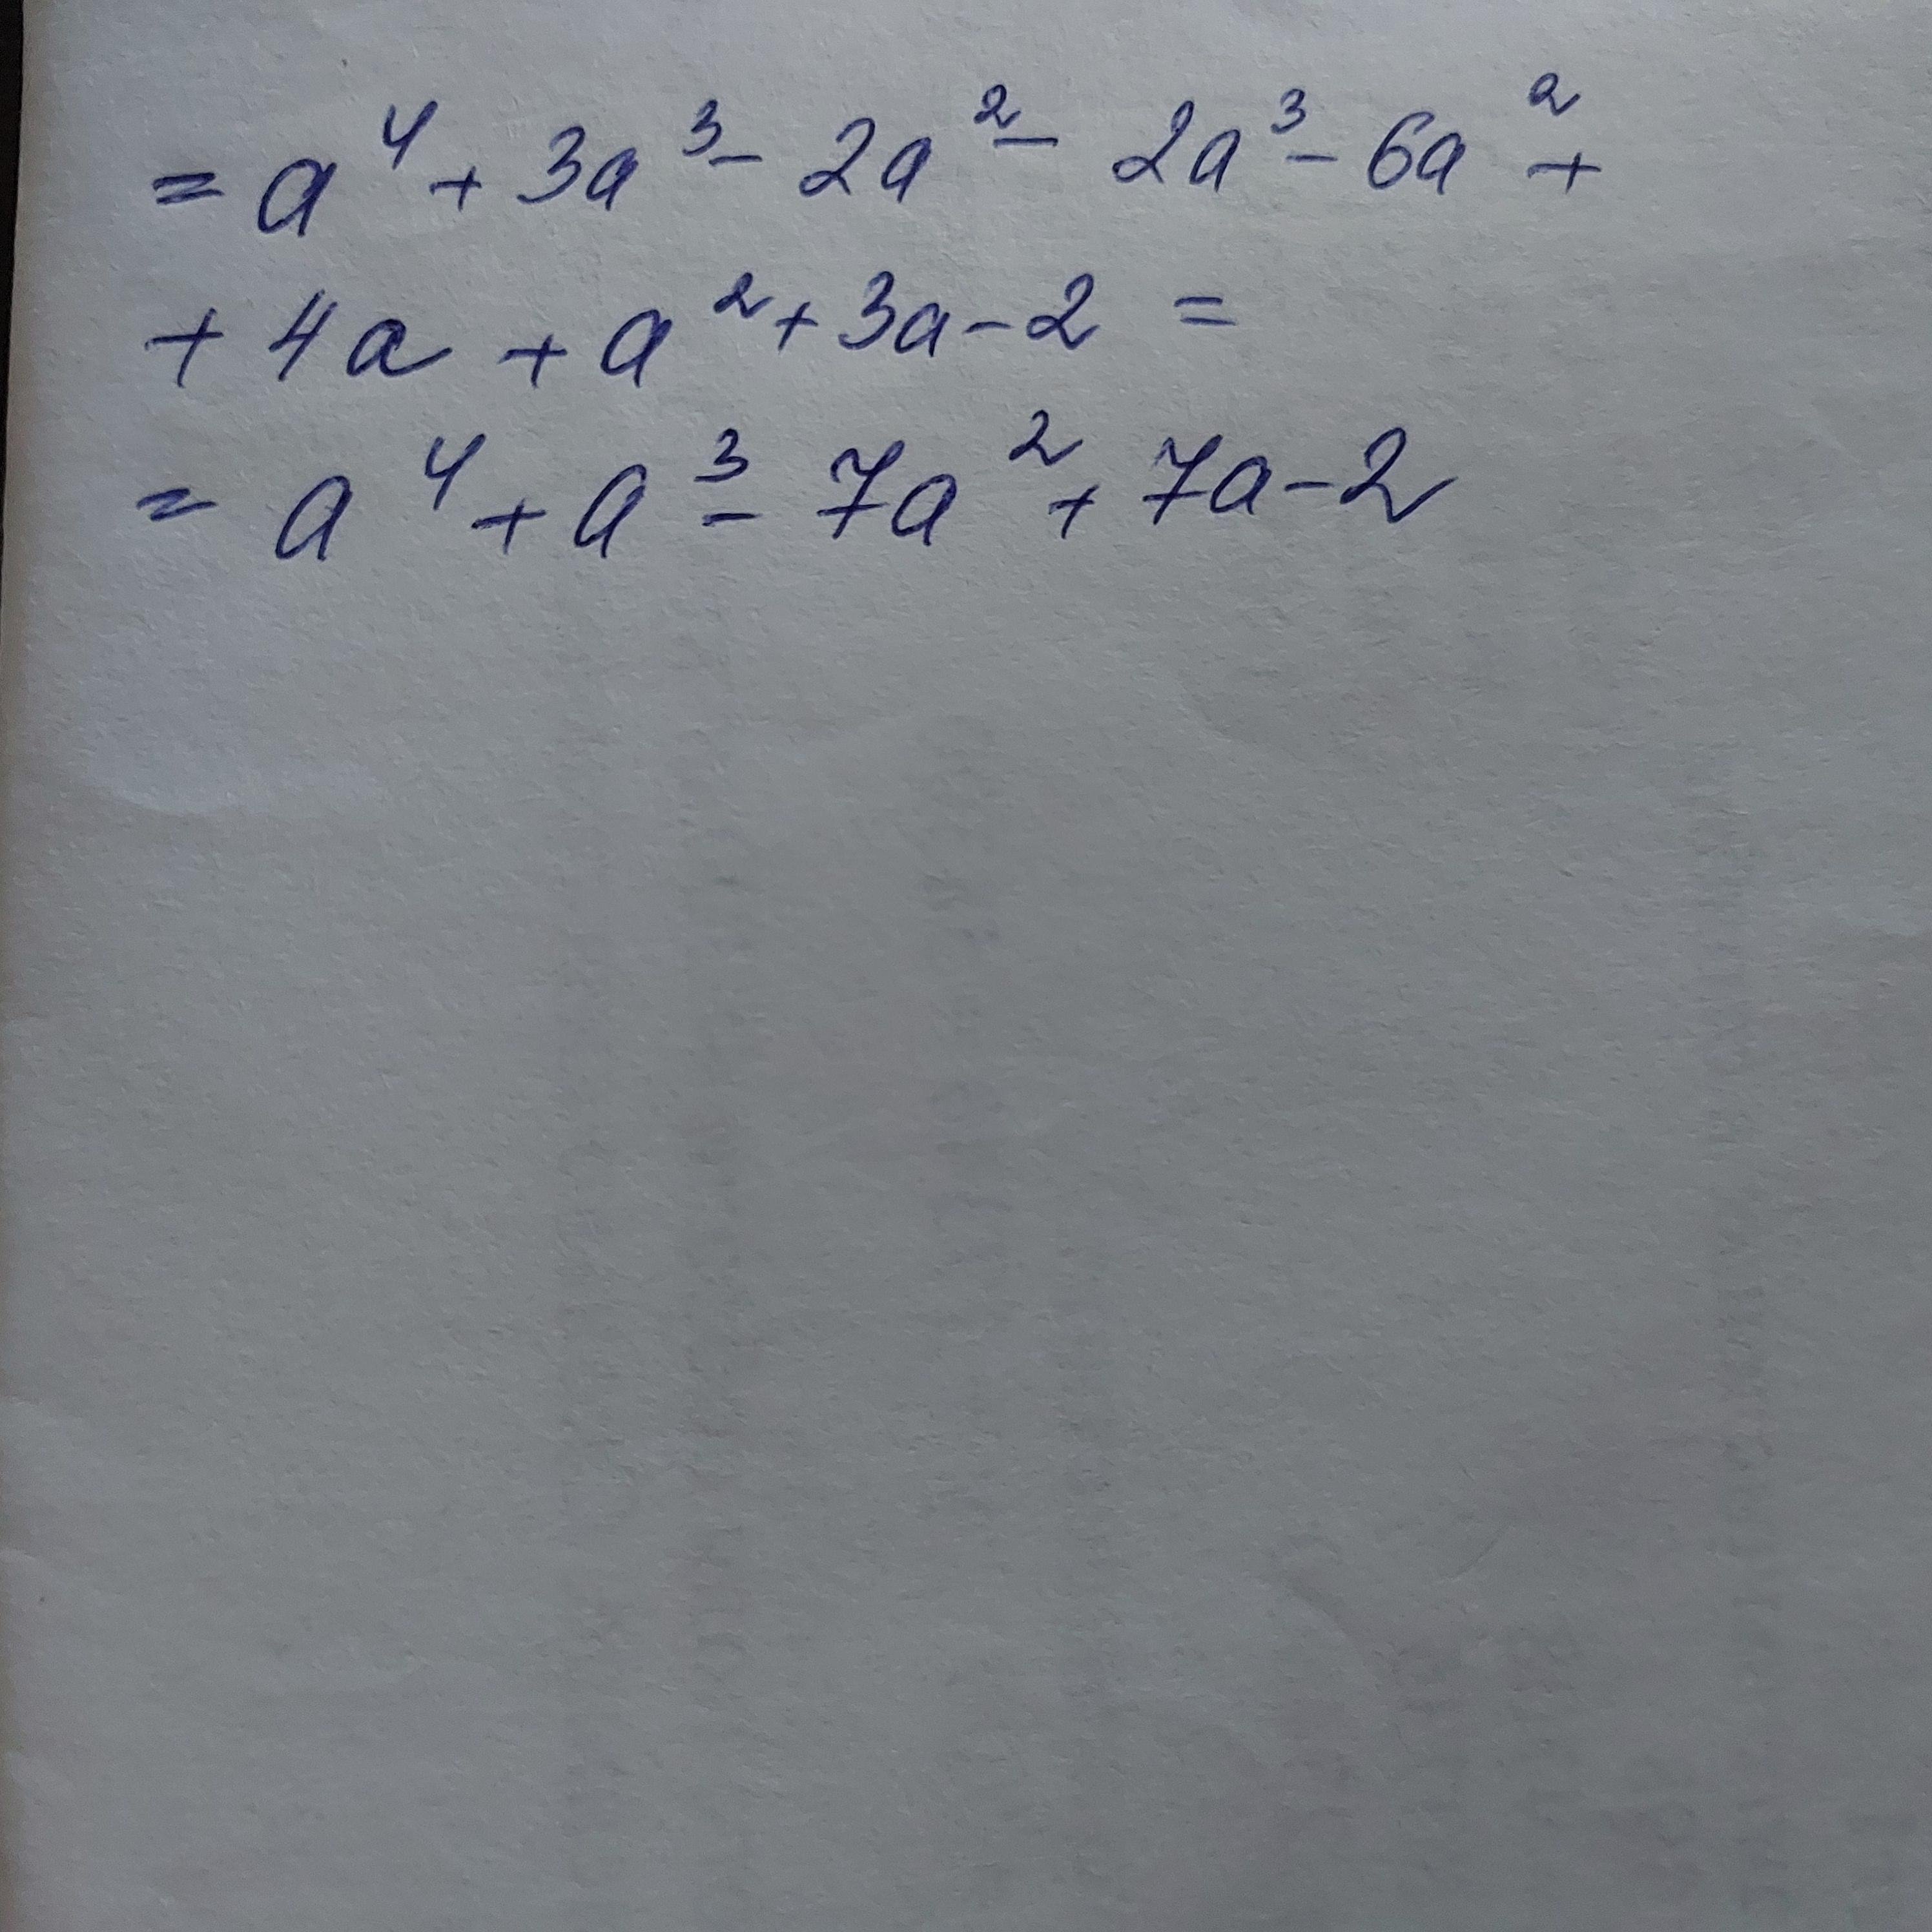 = a⁴ + 3a³ - 2a² - 2a³ - 6a² +
+ 4a + a² + 3a - 2 =
= a⁴ + a³ - 7a² + 7a - 2